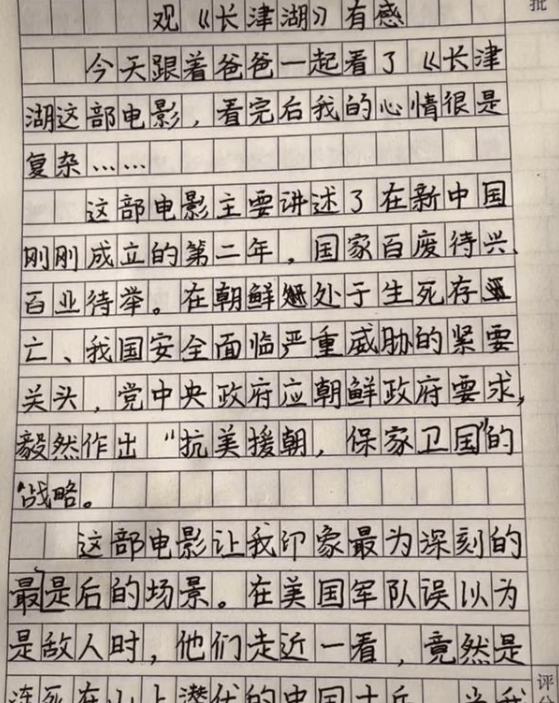 批
观《长津湖》有感
今天跟着爸爸一起看了《长津
湖这部电影，看完后我的心情很是
复杂……
这部电影主要讲述了在新中国
刚刚成立的第二年，国家百废待兴、
百业待举。在朝鲜处于生死存
亡、我国安全面临严重威胁的紧要
关头，党中央政府应朝鲜政府要求，
毅然作出“抗美援朝，保家卫国”的
战略。
这部电影让我印象最为深刻的
最是后的场景。在美国军队误以为
是敌人时，他们走近一看，竟然是
冻死在山上潜伏的中国士兵
评